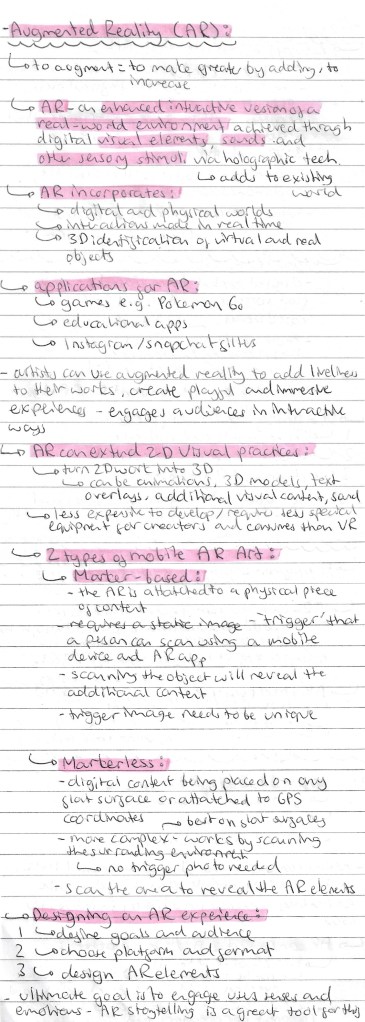 - Augmented Reality (AR):
↳ to augment = to make greater by adding, to
increase
↳ AR - an enhanced interactive version of a
real-world environment achieved through
digital visual elements, sounds and
other sensory stimuli via holographic tech.
↳ adds to existing
world
↳ AR incorporates:
↳ digital and physical worlds
↳ interactions made in real time
↳ 3D identification of virtual and real
objects
↳ applications for AR:
↳ games e.g. Pokemon Go
↳ educational apps
↳ Instagram/snapchat filters
- artists can use augmented reality to add liveliness
to their works, create playful and immersive
experiences - engages audiences in interactive
ways
↳ AR can extend 2-D Visual practices:
↳ turn 2D work into 3D
↳ can be animations, 3D models, text
overlays, additional visual content, sound
↳ less expensive to develop/require less special
equipment for creators and consumers than VR
↳ 2 types of mobile AR Art:
↳ Marker-based:
- the AR is attatched to a physical piece
of content
- requires a static image - 'trigger' that
a person can scan using a mobile
device and AR app
- scanning the object will reveal the
additional content
- trigger image needs to be unique
↳ Markerless:
- digital content being placed on any
flat surface or attatched to GPS
coordinates ↳ best on flat surfaces
- more complex - works by scanning
the surrounding environment
↳ no trigger photo needed
- scan the area to reveal the AR elements
↳ Designing an AR experience:
1 ↳ define goals and audience
2 ↳ choose platform and format
3 ↳ design AR elements
- ultimate goal is to engage users senses and
emotions - AR storytelling is a great tool for this